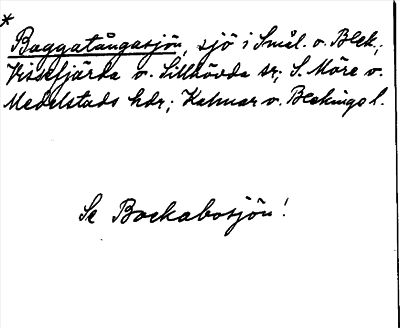 *
Baggatångasjön, sjö i Smål. o. Blek.;
Vissefjärda o. Sillhövda sr; S. Möre o.
Medelstads hdr; Kalmar o. Blekinge l.
Se Bockabosjön!